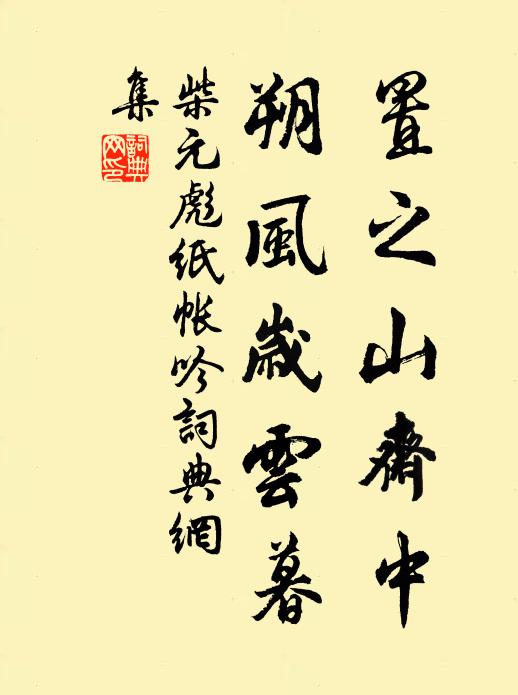 置之山齋中
朔風歲雲暮
柴元彪紙帳吟詞典網
集
詞典
網印